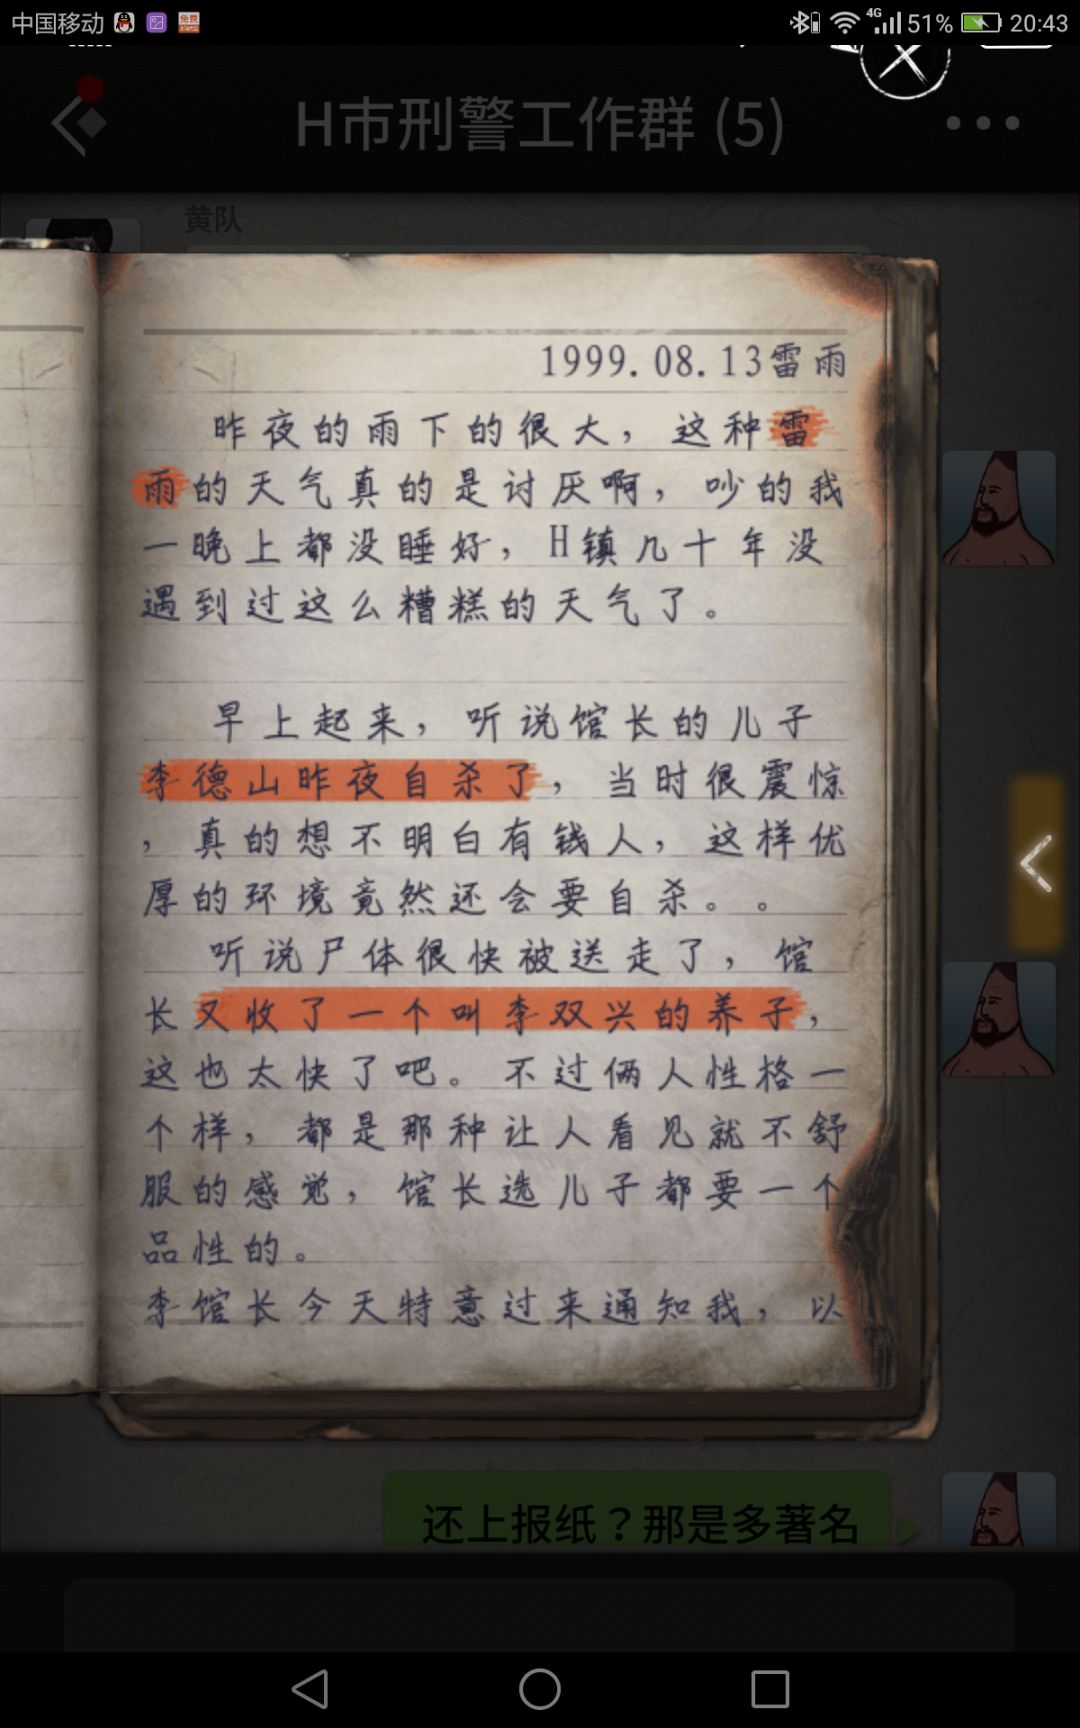 中国移动
4G
51%
20:43
H市刑警工作群 (5)
黄队
1999.08.13雷雨
昨夜的雨下的很大，这种雷
雨的天气真的是讨厌啊，吵的我
一晚上都没睡好，H镇几十年没
遇到过这么糟糕的天气了。
早上起来，听说馆长的儿子
李德山昨夜自杀了，当时很震惊
，真的想不明白有钱人，这样优
厚的环境竟然还会要自杀。。
听说尸体很快被送走了，馆
长又收了一个叫李双兴的养子，
这也太快了吧。不过俩人性格一
个样，都是那种让人看见就不舒
服的感觉，馆长选儿子都要一个
品性的。
李馆长今天特意过来通知我，以
还上报纸？那是多著名